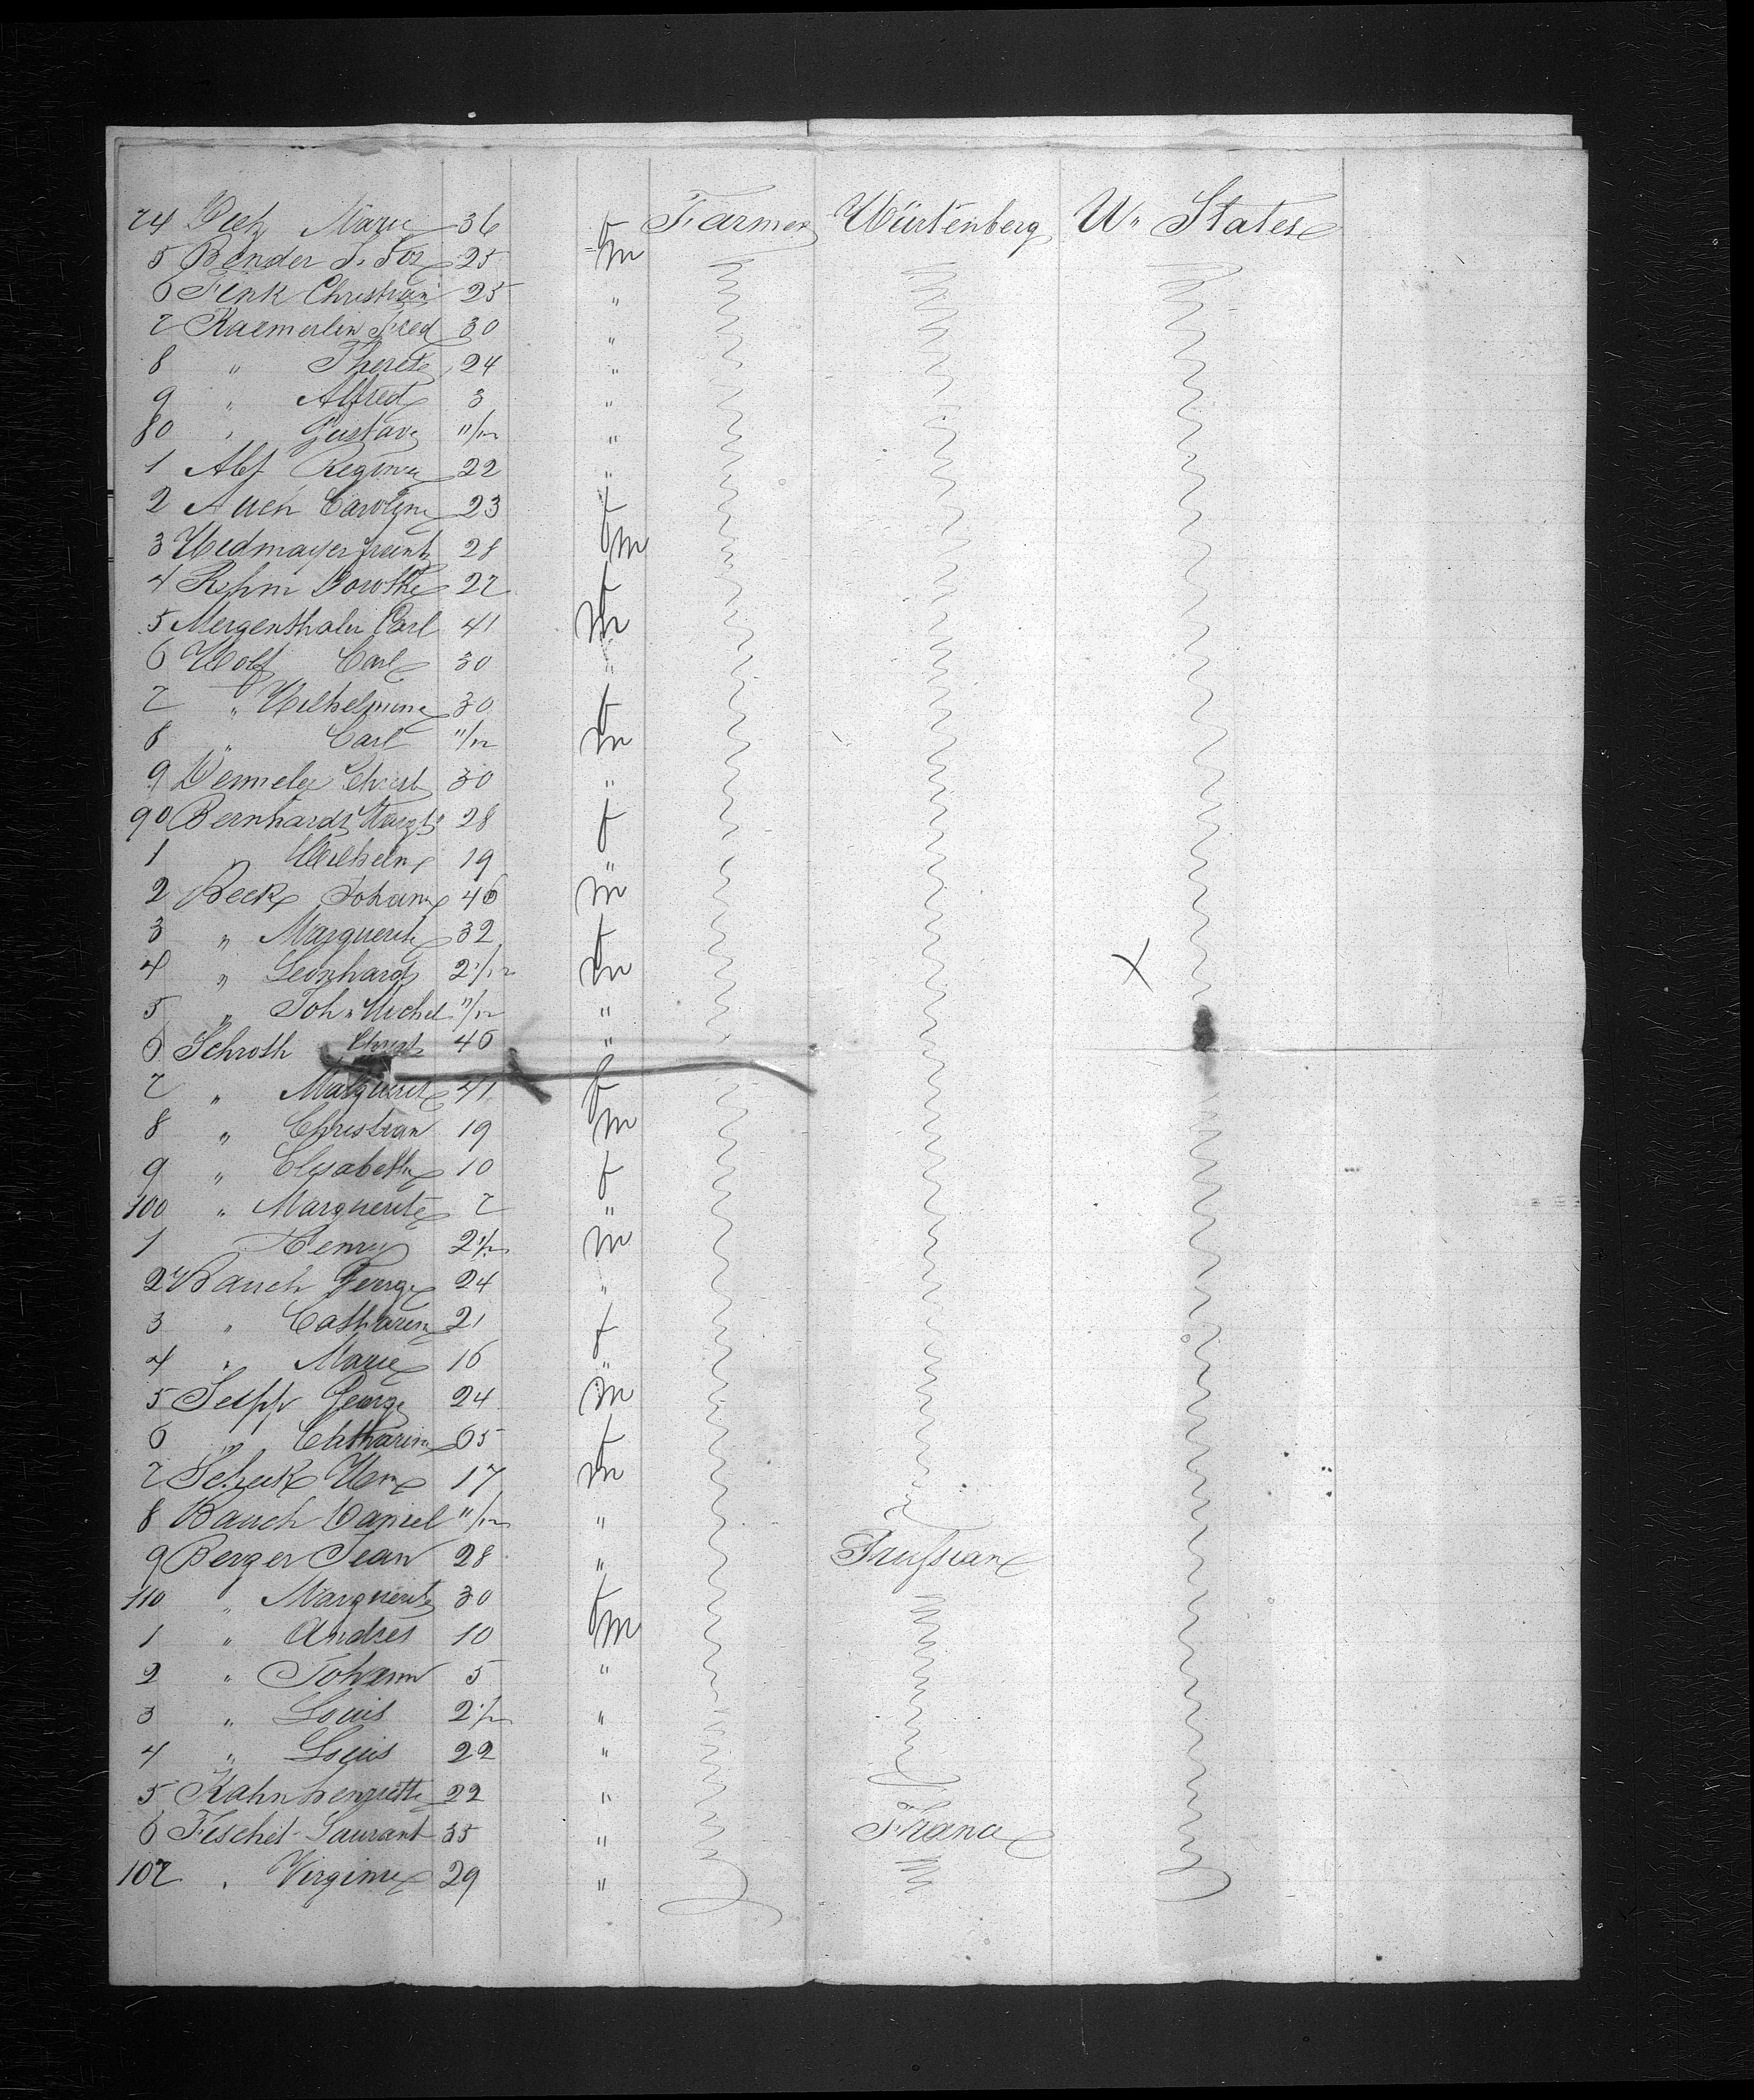 74 Marie 36 f Farmer Würtenberg U. States
5 Bender J. 25 m
6 Fink Christian 25 "
7 Kaemerlin Fred 30 "
8 " Therese 24 "
9 " Alfred 3 "
80 " Gustave 11/12 "
1 Regina 22 "
2 Auch Caroline 23 f
3 Wedmayer 28 m
4 Rehm Dorothe 27 f
5 Mergenthaler Carl 41 m
6 Wolf Carl 30 "
7 " Wilhelmine 30 f
8 " Carl 11/12 m
9 Christ 30 "
90 Bernhardt 28 f
1 " Wilhelm 19 "
2 Beck Johann 46 m
3 " Marguerite 32 f
4 " Leonhard 2 1/12 m X
5 " Joh. Michel 11/12 "
6 Schroth Christ 46 "
7 " Marguerite 41 f
8 " Christian 19 m
9 " Elisabeth 10 f
100 " Marguerite 7 "
1 Henry 2 1/2 m
2 Bauch George 24 "
3 " Catharine 21 f
4 " Marie 16 "
5 Seipp George 24 m
6 " Chatharine 65 f
7 Scheck Wm 17 m
8 Bauch Daniel 11/12 "
9 Berger Jean 28 " Prussian
110 " Marguerite 30 f
1 " Andres 10 m
2 " Johann 5 "
3 " Louis 2 1/2 "
4 " Louis 22 "
5 Kahn henriette 22 "
6 Feschet Laurant 35 " France
107 " Virginie 29 "